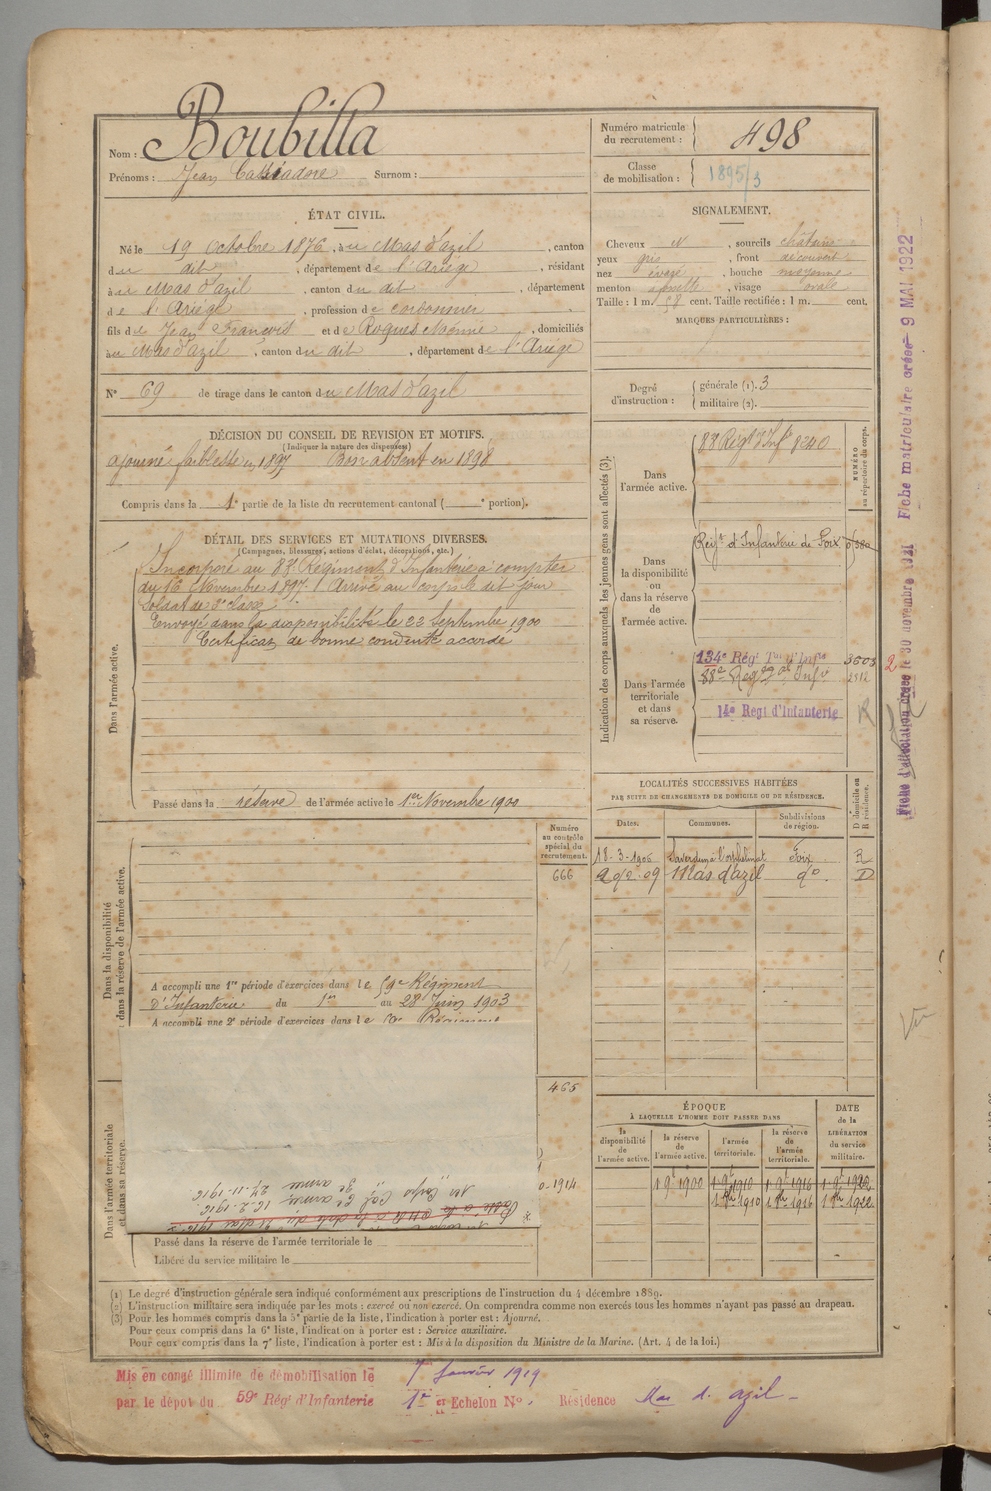 Nom : Boubilla
Prénoms : Jean Surnom :
Numéro matricule du recrutement : 498
Classe de mobilisation : 1895/3
ÉTAT CIVIL.
Né le 19 Octobre 1876, au Mas d'azil, canton
du dit, département de l'Ariège, résidant
à au Mas d'azil, canton du dit, département
de l'Ariège, profession de cordonnier
fils de Jean François et de Roques Noémie, domiciliés
à au Mas d'azil, canton du dit, département de l'Ariège
N° 69 de tirage dans le canton du Mas d'azil
SIGNALEMENT.
Cheveux N, sourcils châtains
yeux gris, front découvert
nez évasé, bouche moyenne
menton, visage ovale
Taille : 1 m 58 cent. Taille rectifiée : 1 m. cent.
MARQUES PARTICULIÈRES :
Degré d'instruction : générale (1). 3
militaire (2).
DÉCISION DU CONSEIL DE REVISION ET MOTIFS.
(Indiquer la nature des dispenses)
ajourné faiblesse en 1897 Bon absent en 1898
Compris dans la 1e partie de la liste du recrutement cantonal ( e portion).
DÉTAIL DES SERVICES ET MUTATIONS DIVERSES.
(Campagnes, blessures, actions d'éclat, décorations, etc.)
Dans l'armée active.
Incorporé au 88e Régiment d'Infanterie à compter
du 16 Novembre 1897. Arrivé au corps le dit jour
Soldat de 2e classe
Envoyé dans la disponibilité le 22 Septembre 1900
Certificat de bonne conduite accordé
Passé dans la réserve de l'armée active le 1er Novembre 1900
Indication des corps auxquels les jeunes gens sont affectés (3).
NUMÉRO au répertoire du corps.
Dans l'armée active.
88 Régt d'Infie 8240
Dans la disponibilité ou dans la réserve de l'armée active.
Regt d'Infanterie de Foix
Dans l'armée territoriale et dans sa réserve.
134e Régt Tal d'Infie 3603
88e Reg Infie 2512
14e Régt d'Infanterie
LOCALITÉS SUCCESSIVES HABITÉES
PAR SUITE DE CHANGEMENTS DE DOMICILE OU DE RÉSIDENCE.
Dates. Communes. Subdivisions de région. D domicile ou R résidence.
18-3-1906 Saverdun à l'orphelinat Foix R
Mas d'azil do D
Numéro au contrôle spécial du recrutement.
666
Dans la disponibilité
dans la réserve de l'armée active.
A accompli une 1re période d'exercices dans le 59e Régiment
D'Infanterie du 1er au 28 Juin 1903
A accompli une 2e période d'exercices dans le Régiment
465
Dans l'armée territoriale et dans sa réserve.
0-1914
Passé dans la réserve de l'armée territoriale le
Libéré du service militaire le
ÉPOQUE
À LAQUELLE L'HOMME DOIT PASSER DANS
DATE de la LIBÉRATION du service militaire.
la disponibilité de l'armée active. la réserve de l'armée active. l'armée territoriale. la réserve de l'armée territoriale.
1 9e 1900 1-9e 1910 1-9e 1916 1-9e 1922
1 8bre 1910 1 8bre 1916 1 8bre 1922
(1) Le degré d'instruction générale sera indiqué conformément aux prescriptions de l'instruction du 4 décembre 1889.
(2) L'instruction militaire sera indiquée par les mots : exercé ou non exercé. On comprendra comme non exercés tous les hommes n'ayant pas passé au drapeau.
(3) Pour les hommes compris dans la 5e partie de la liste, l'indication à porter est : Ajourné.
Pour ceux compris dans la 6e liste, l'indication à porter est : Service auxiliaire.
Pour ceux compris dans la 7e liste, l'indication à porter est : Mis à la disposition du Ministre de la Marine. (Art. 4 de la loi.)
Mis en congé illimité de démobilisation le 7 Janvier 1919
par le dépôt du 59e Régt d'Infanterie 1er Echelon N° Résidence Mas d'azil
Fiche d'allocation créée le 30 novembre 1931 Fiche matriculaire créée 9 MAI 1922
2